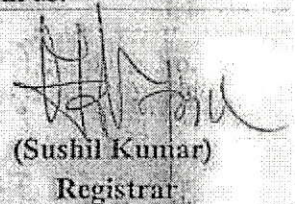 (Sushil Kumar)
Registrar